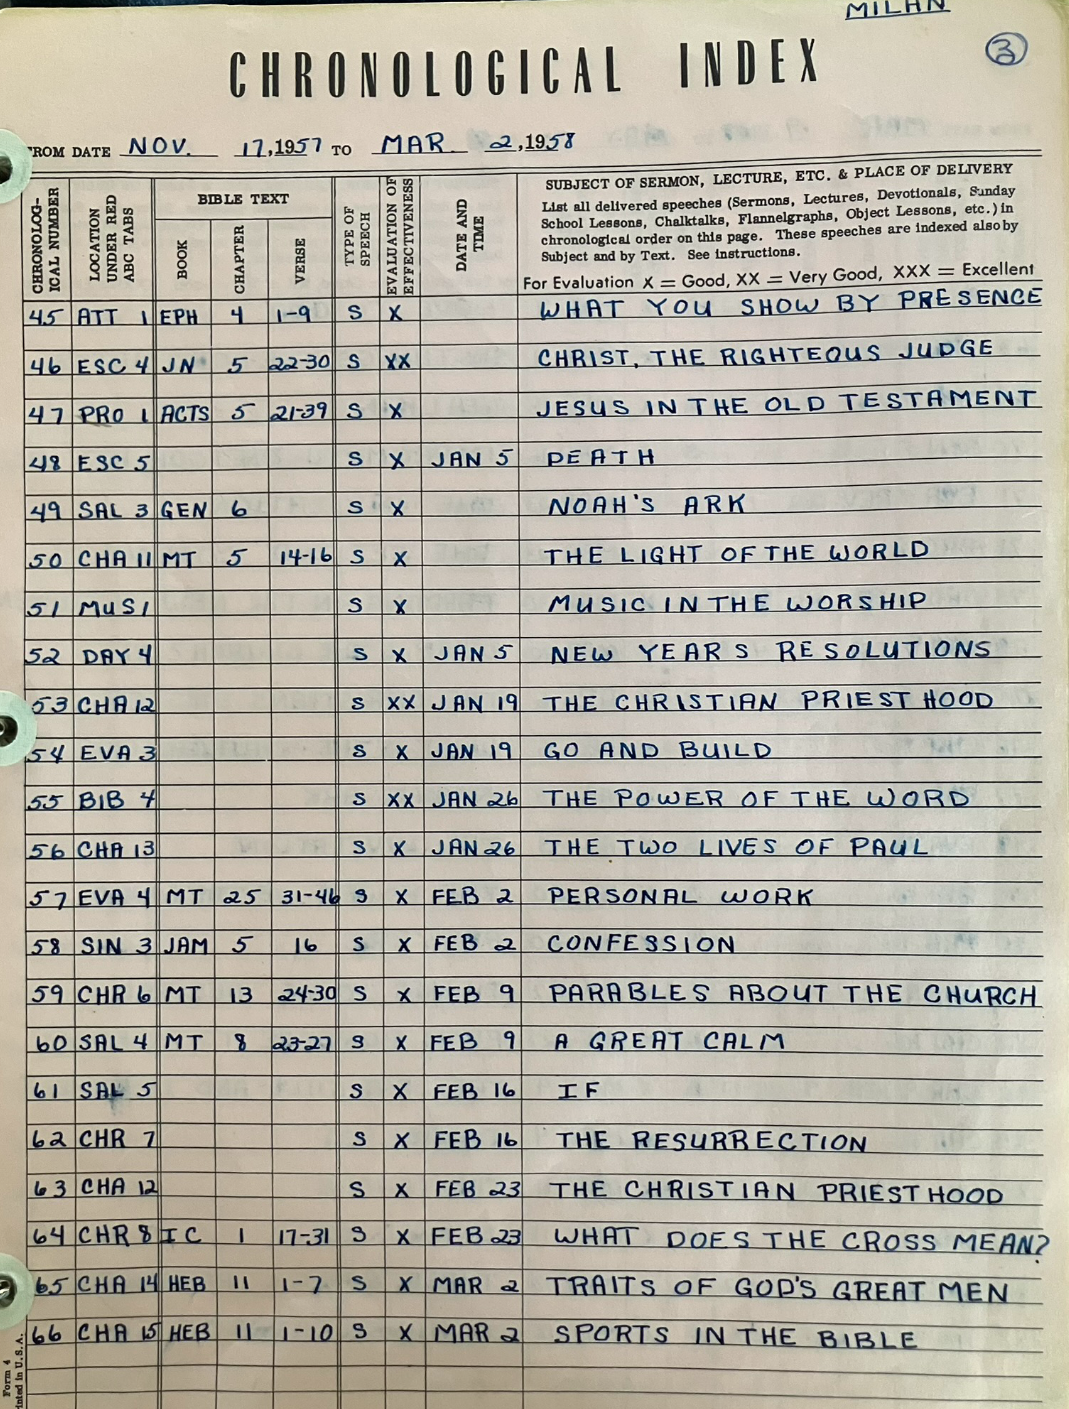 MILAN
3
CHRONOLOGICAL INDEX
FROM DATE NOV. 17, 1957 TO MAR. 2, 1958
CHRONOLOG-ICAL NUMBER
LOCATION UNDER RED ABC TABS
BIBLE TEXT
BOOK
CHAPTER
VERSE
TYPE OF SPEECH
EVALUATION OF EFFECTIVENESS
DATE AND TIME
SUBJECT OF SERMON, LECTURE, ETC. & PLACE OF DELIVERY
List all delivered speeches (Sermons, Lectures, Devotionals, Sunday
School Lessons, Chalktalks, Flannelgraphs, Object Lessons, etc.) in
chronological order on this page. These speeches are indexed also by
Subject and by Text. See instructions.
For Evaluation X = Good, XX = Very Good, XXX = Excellent
45 ATT 1 EPH 4 1-9 S X WHAT YOU SHOW BY PRESENCE
46 ESC 4 JN 5 22-30 S XX CHRIST, THE RIGHTEOUS JUDGE
47 PRO 1 ACTS 5 21-39 S X JESUS IN THE OLD TESTAMENT
48 ESC 5 S X JAN 5 DEATH
49 SAL 3 GEN 6 S X NOAH'S ARK
50 CHA 11 MT 5 14-16 S X THE LIGHT OF THE WORLD
51 MUS 1 S X MUSIC IN THE WORSHIP
52 DAY 4 S X JAN 5 NEW YEARS RESOLUTIONS
53 CHA 12 S XX JAN 19 THE CHRISTIAN PRIESTHOOD
54 EVA 3 S X JAN 19 GO AND BUILD
55 BIB 4 S XX JAN 26 THE POWER OF THE WORD
56 CHA 13 S X JAN 26 THE TWO LIVES OF PAUL
57 EVA 4 MT 25 31-46 S X FEB 2 PERSONAL WORK
58 SIN 3 JAM 5 16 S X FEB 2 CONFESSION
59 CHR 6 MT 13 24-30 S X FEB 9 PARABLES ABOUT THE CHURCH
60 SAL 4 MT 8 23-27 S X FEB 9 A GREAT CALM
61 SAL 5 S X FEB 16 IF
62 CHR 7 S X FEB 16 THE RESURRECTION
63 CHA 12 S X FEB 23 THE CHRISTIAN PRIESTHOOD
64 CHR 8 I C 1 17-31 S X FEB 23 WHAT DOES THE CROSS MEAN?
65 CHA 14 HEB 11 1-7 S X MAR 2 TRAITS OF GOD'S GREAT MEN
66 CHA 15 HEB 11 1-10 S X MAR 2 SPORTS IN THE BIBLE
Form 4
Printed in U.S.A.